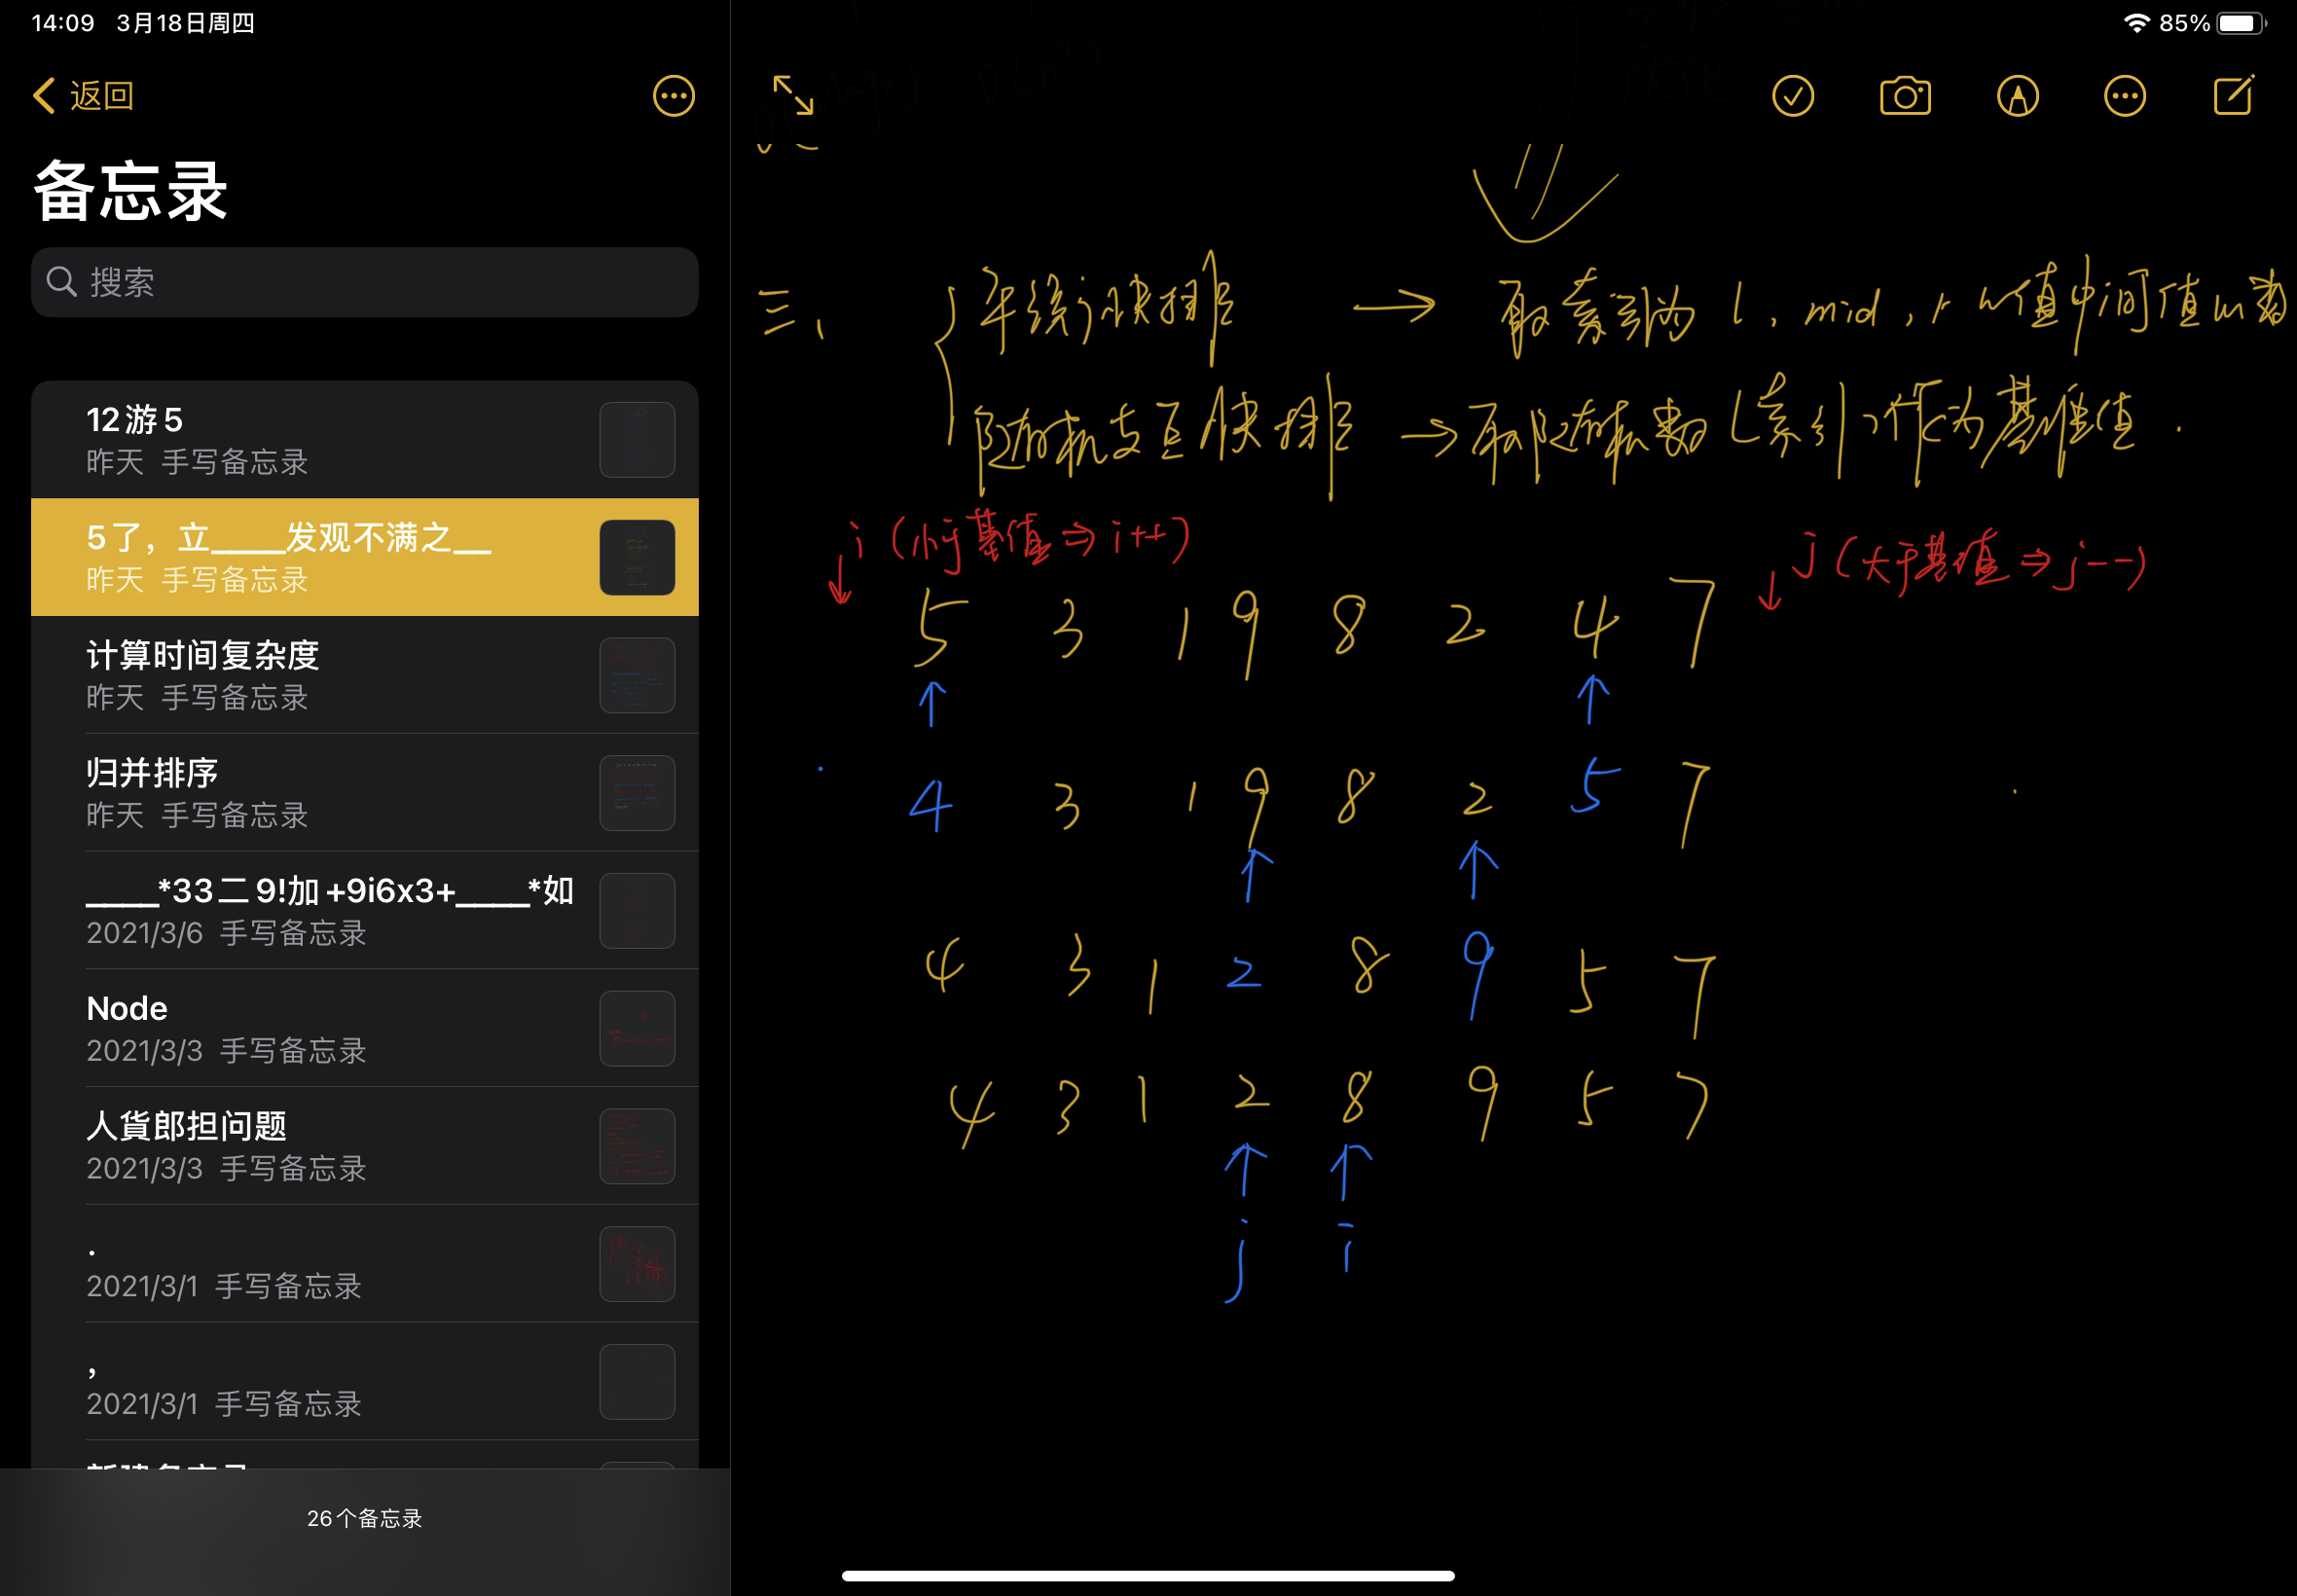 14:09 3月18日周四
85%
返回
备忘录
搜索
12游5
昨天 手写备忘录
5了，立____发观不满之__
昨天 手写备忘录
计算时间复杂度
昨天 手写备忘录
归并排序
昨天 手写备忘录
____*33二9!加+9i6x3+____*如
2021/3/6 手写备忘录
Node
2021/3/3 手写备忘录
人貨郎担问题
2021/3/3 手写备忘录
.
2021/3/1 手写备忘录
，
2021/3/1 手写备忘录
26个备忘录
优化
三、
平衡快排 → 取索引为 l, mid, r 的值中间值的数
随机支点快排 → 取随机数(索引)作为基准值.
i (小于基值⇒i++)
j (大于基值⇒j--)
5 3 1 9 8 2 4 7
4 3 1 9 8 2 5 7
4 3 1 2 8 9 5 7
4 3 1 2 8 9 5 7
j i